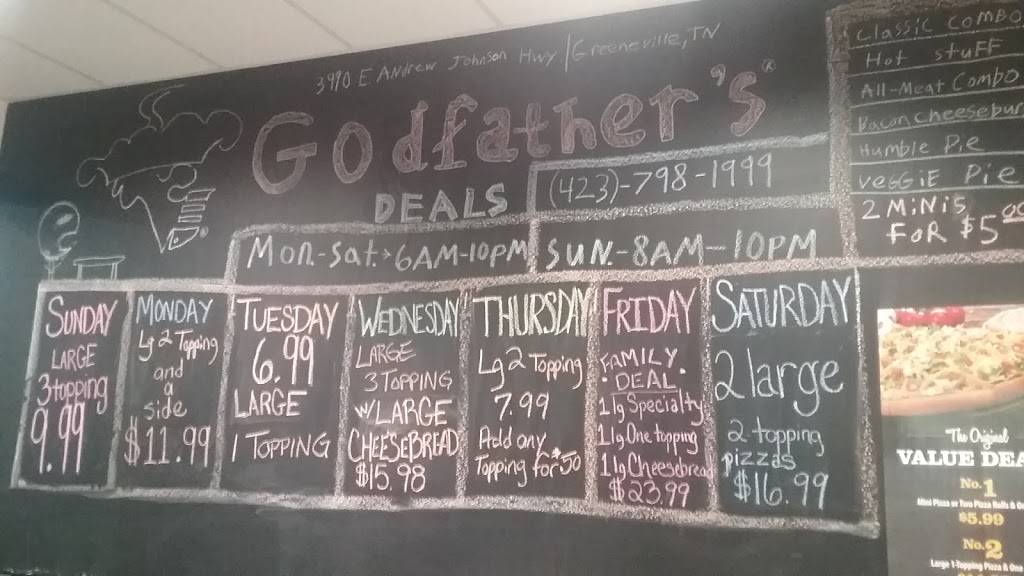 3990 E Andrew Johnson Hwy/Greeneville, TN
Godfather's
DEALS
(423)-798-1999
Mon.-Sat. 6AM-10PM
SUN.-8AM-10PM
SUNDAY
LARGE
3 topping
9.99
MONDAY
Lg 2 Topping
and
a
side
$11.99
TUESDAY
6.99
LARGE
1 TOPPING
WEDNESDAY
LARGE
3 TOPPING
w/ LARGE
CHEESEBREAD
$15.98
THURSDAY
Lg 2 Topping
7.99
Add any
Topping for
FRIDAY
FAMILY
DEAL
1 lg Specialty
1 lg One topping
1 lg Cheesebread
$23.99
SATURDAY
2 large
2 topping
pizzas
$16.99
CLASSIC COMBO
Hot stuFF
All-Meat Combo
Bacon Cheesebur
Humble Pie
VEGGIE Pie
2 MiNiS
FoR $5
The Original
VALUE DEA
No. 1
Mini Pizza or Two Pizza Rolls &
$5.99
No. 2
Large 1-Topping Pizza & One